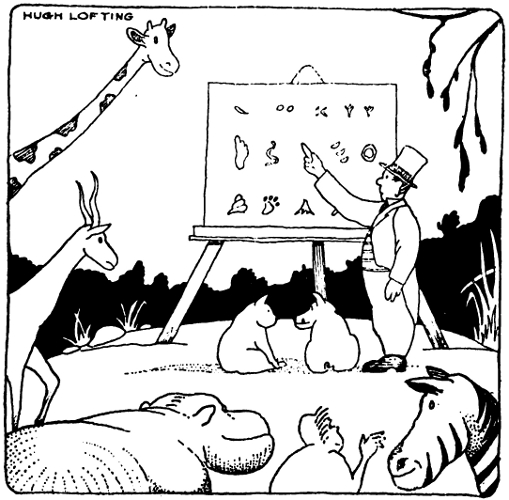 HUGH LOFTING